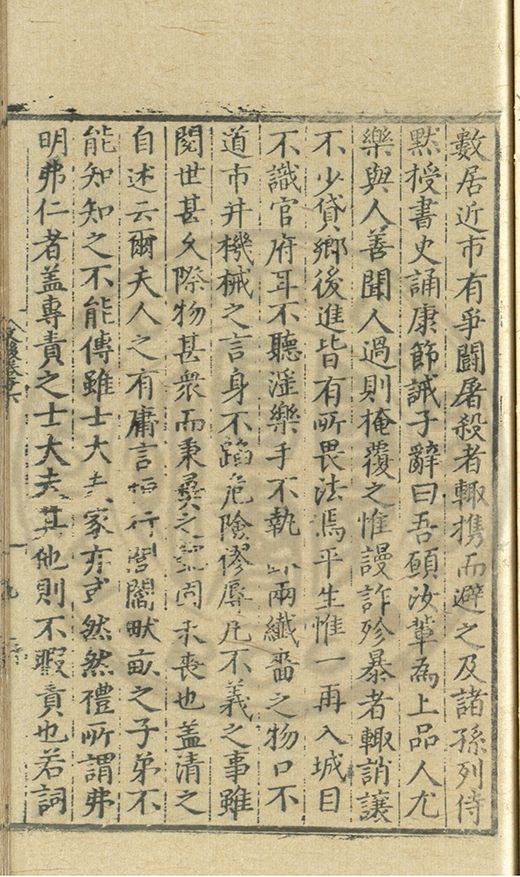 數居近市有爭鬪屠殺者輙携而避之及諸孫列侍
黙授書史誦康節誡子辭曰吾願汝輩為上品人尤
樂與人善聞人過則掩覆之惟謾詐殄暴者輙誚讓
不少貸鄉後進皆有所畏法焉平生惟一再入城目
不識官府耳不聽滛樂手不執 兩纖嗇之物口不
道市井機械之言身不蹈危險僇辱凡不義之事雖
閱世甚久際物甚衆而秉彞之 固未喪也盖清之
自述云爾夫人之有庸言 行 闇畎畝之子弟不
能知知之不能傳雖士大夫家亦或然然禮所謂弗
明弗仁者盖專責之士大夫其他則不暇責也若詞